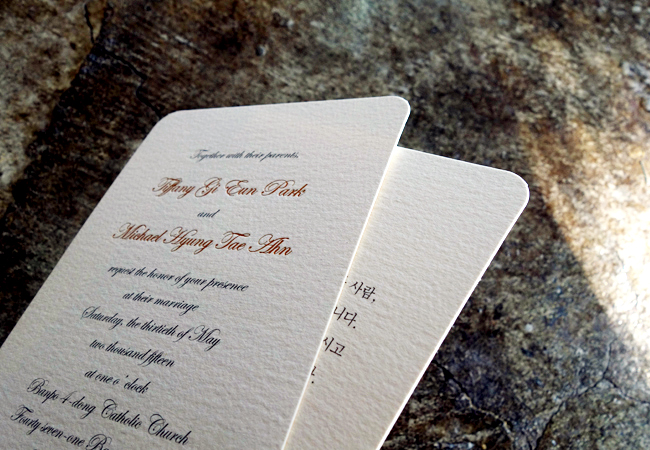 Together with their parents,
Tiffany Gi Eun Park
and
Michael Hyung Tae Ahn
request the honor of your presence
at their marriage
Saturday, the thirtieth of May
two thousand fifteen
at one o'clock
Banpo 4-dong Catholic Church
Fourty-seven-one
사람,
니다.
시고